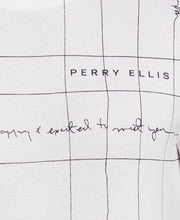 PERRY ELLIS
happy & excited to meet you